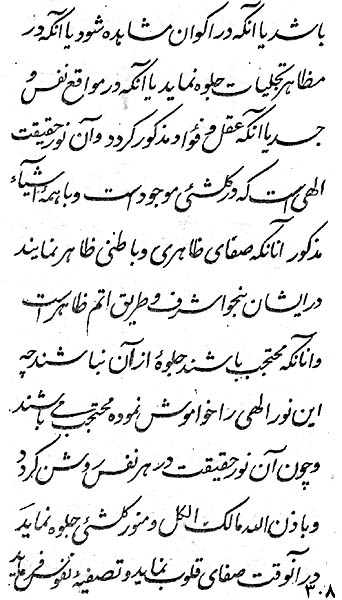 باشد یا آنکه در اکوان مشاهده شود یا آنکه در
مظاهر تجلیات جلوه نماید یا آنکه در مواقع نفس و
جسد یا آنکه عقل و فؤاد مذکور گردد و آن نور حقیقت
الهی است که در کلشئی موجود است و با همهٔ اشیآء
مذکور آنانکه صفای ظاهری و باطنی ظاهر نمایند
در ایشان بنحو اشرف و طریق اتم ظاهر است
و آنانکه محتجب باشند جلوهٔ از آن نباشند چه
این نور الهی را خواموش نموده محتجب می باشند
و چون آن نور حقیقت در هر نفس روشن گردد
و باذن الله مالک الکل و منور کلشئی جلوه نماید
در آنوقت صفای قلوب نماید و تصفیهٔ نفوس فرماید
۳۰۸